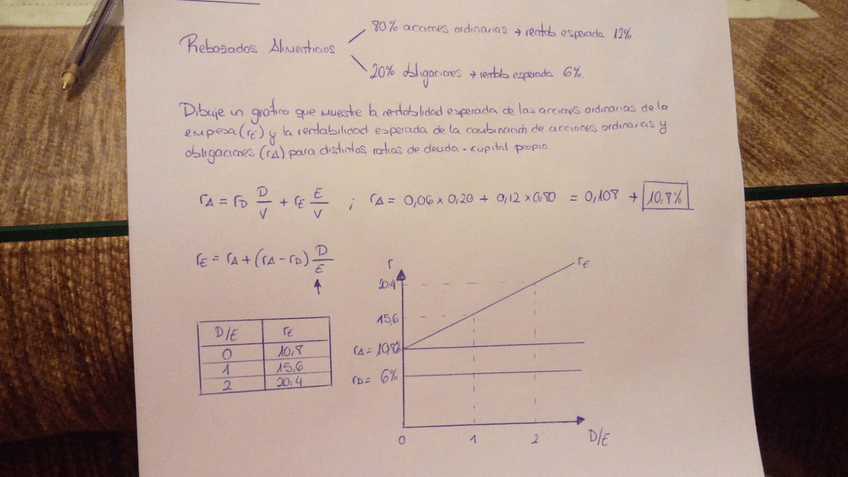 80% acciones ordinarias → rentab esperada 12%
Rebozados Alimenticios
20% obligaciones → rentab esperada 6%.
Dibuje un gráfico que muestre la rentabilidad esperada de las acciones ordinarias de la
empresa (rE) y la rentabilidad esperada de la combinación de acciones ordinarias y
obligaciones (rA) para distintos ratios de deuda - capital propio.
rA = rD D/V + rE E/V ; rA = 0,06 x 0,20 + 0,12 x 0,80 = 0,108 → 10,8%
rE = rA + (rA - rD) D/E
D/E rE
0 10,8
1 15,6
2 20,4
r
rE
20,4
15,6
rA = 10,8%
rD = 6%
0 1 2 D/E